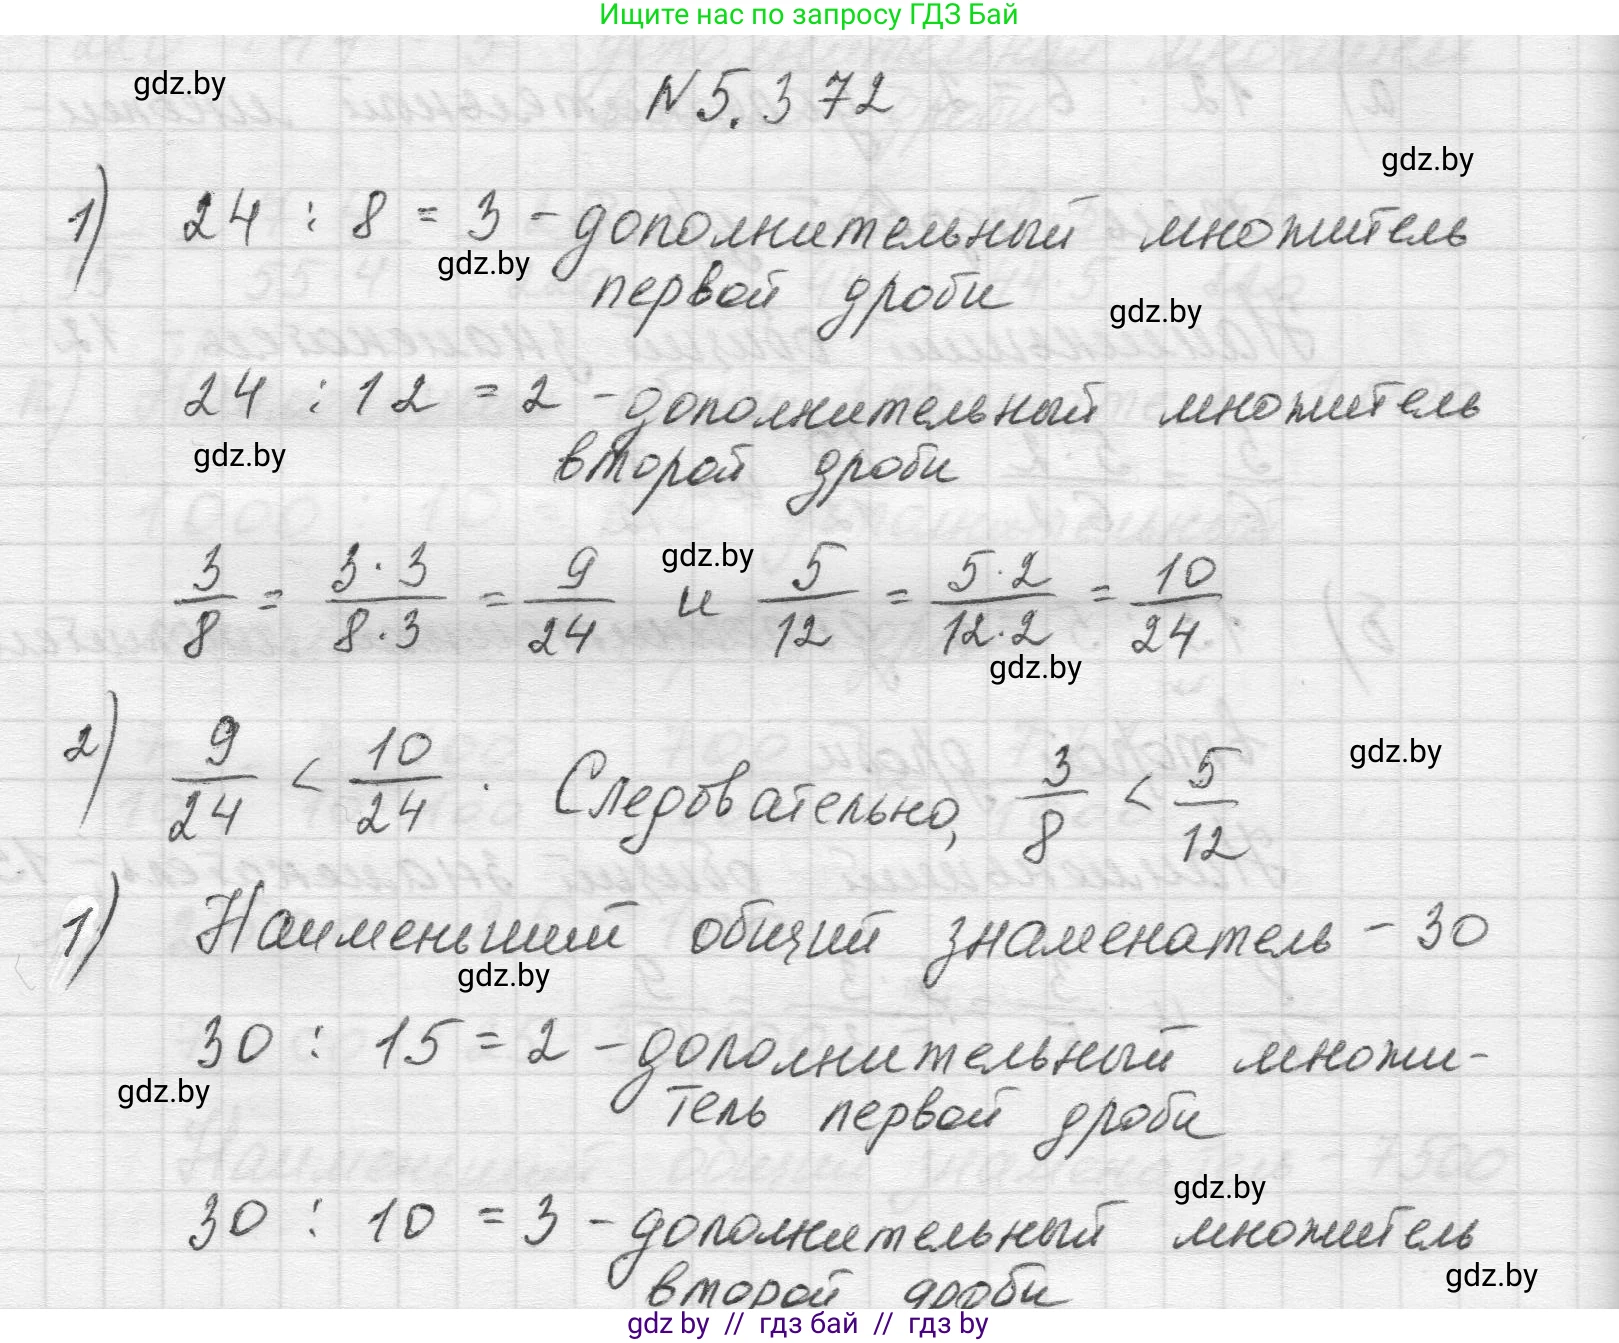 Ищите нас по запросу ГДЗ Бай
gdz.by
N 5.372
gdz.by
1) 24 : 8 = 3 - дополнительный множитель
gdz.by
первой дроби
gdz.by
24 : 12 = 2 - дополнительный множитель
gdz.by
второй дроби
gdz.by
3/8 = 3·3/8·3 = 9/24 и 5/12 = 5·2/12·2 = 10/24.
gdz.by
2) 9/24 < 10/24. Следовательно, 3/8 < 5/12
gdz.by
1) Наименьший общий знаменатель - 30
gdz.by
30 : 15 = 2 - дополнительный множи-
gdz.by
тель первой дроби
gdz.by
30 : 10 = 3 - дополнительный множитель
gdz.by
второй дроби
gdz by // гдз бай // гдз by